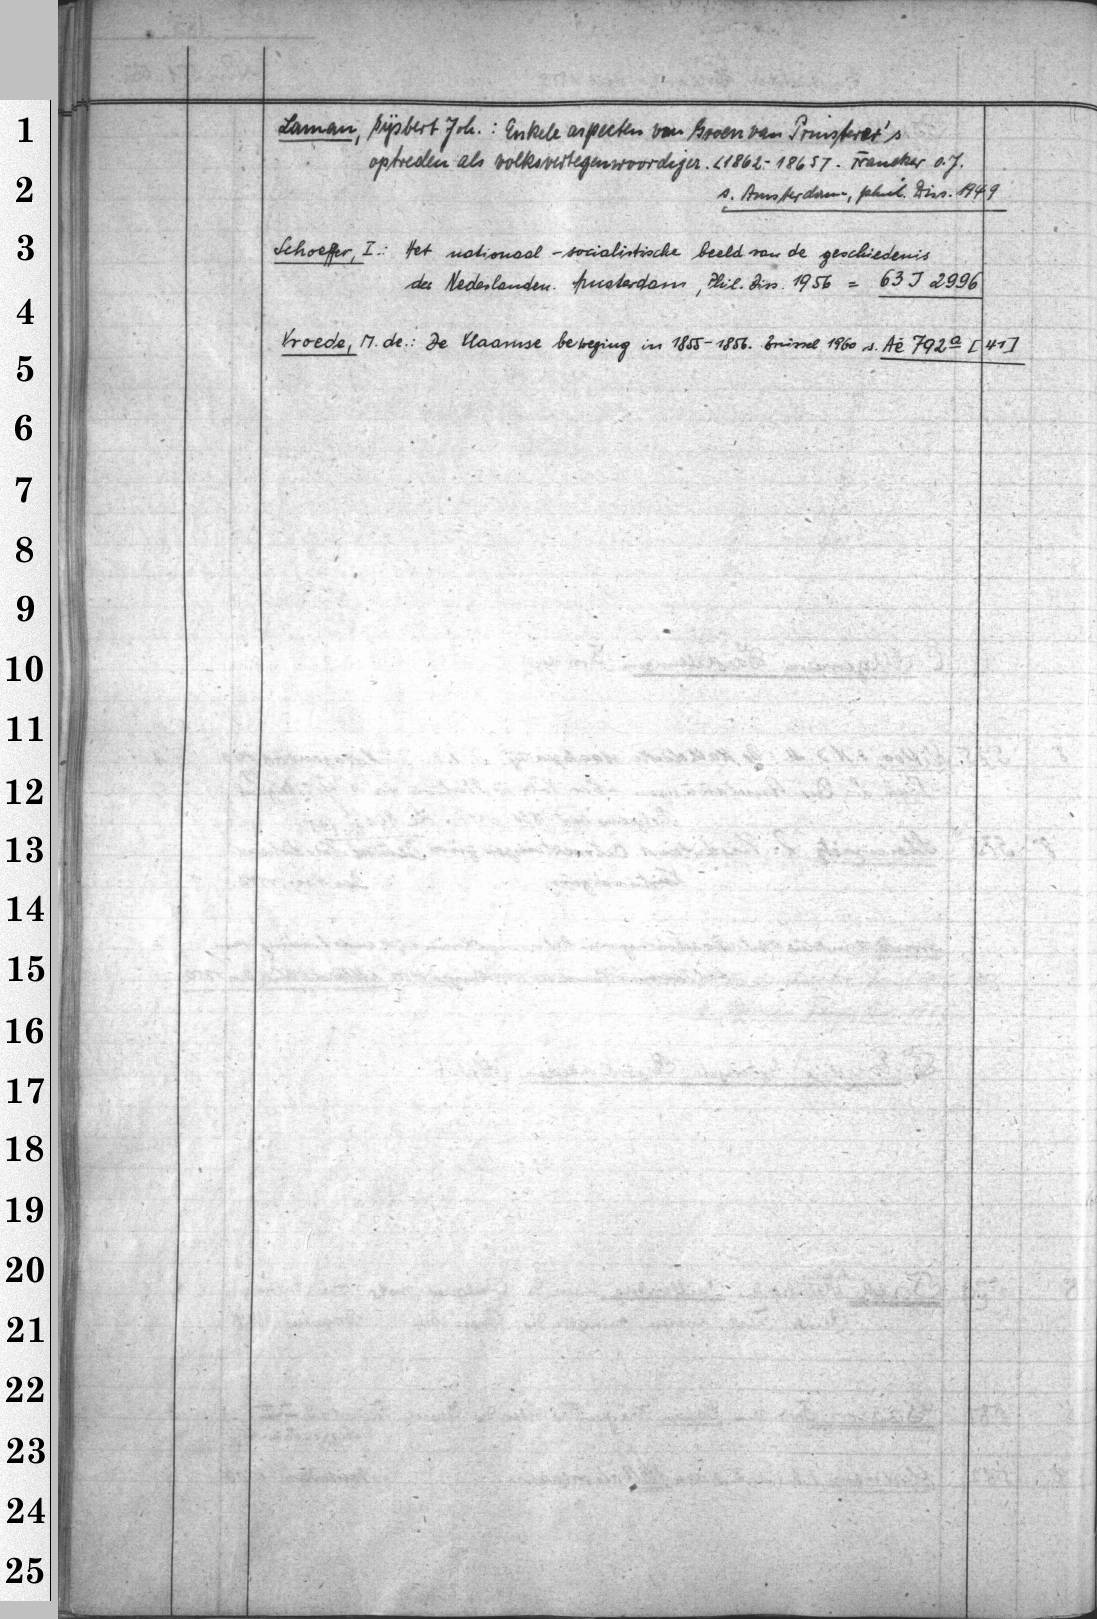 Laman, Gijsbert Joh.: Enkele aspecten van Groen van Prinsterer's
optreden als volksvertegenwoordiger. <1862-1865>. Franeker o.J.
s. Amsterdam, phil. Diss. 1949
Schoeffer, I.: Het nationaal-socialistische beeld van de geschiedenis
der Nederlanden. Amsterdam, Phil. Diss. 1956 = 63 J 2996
Vroede, M. de.: De Vlaamse beweging in 1855-1856. Brüssel 1960 s. Aè 792a [41]
1
2
3
4
5
6
7
8
9
10
11
12
13
14
15
16
17
18
19
20
21
22
23
24
25